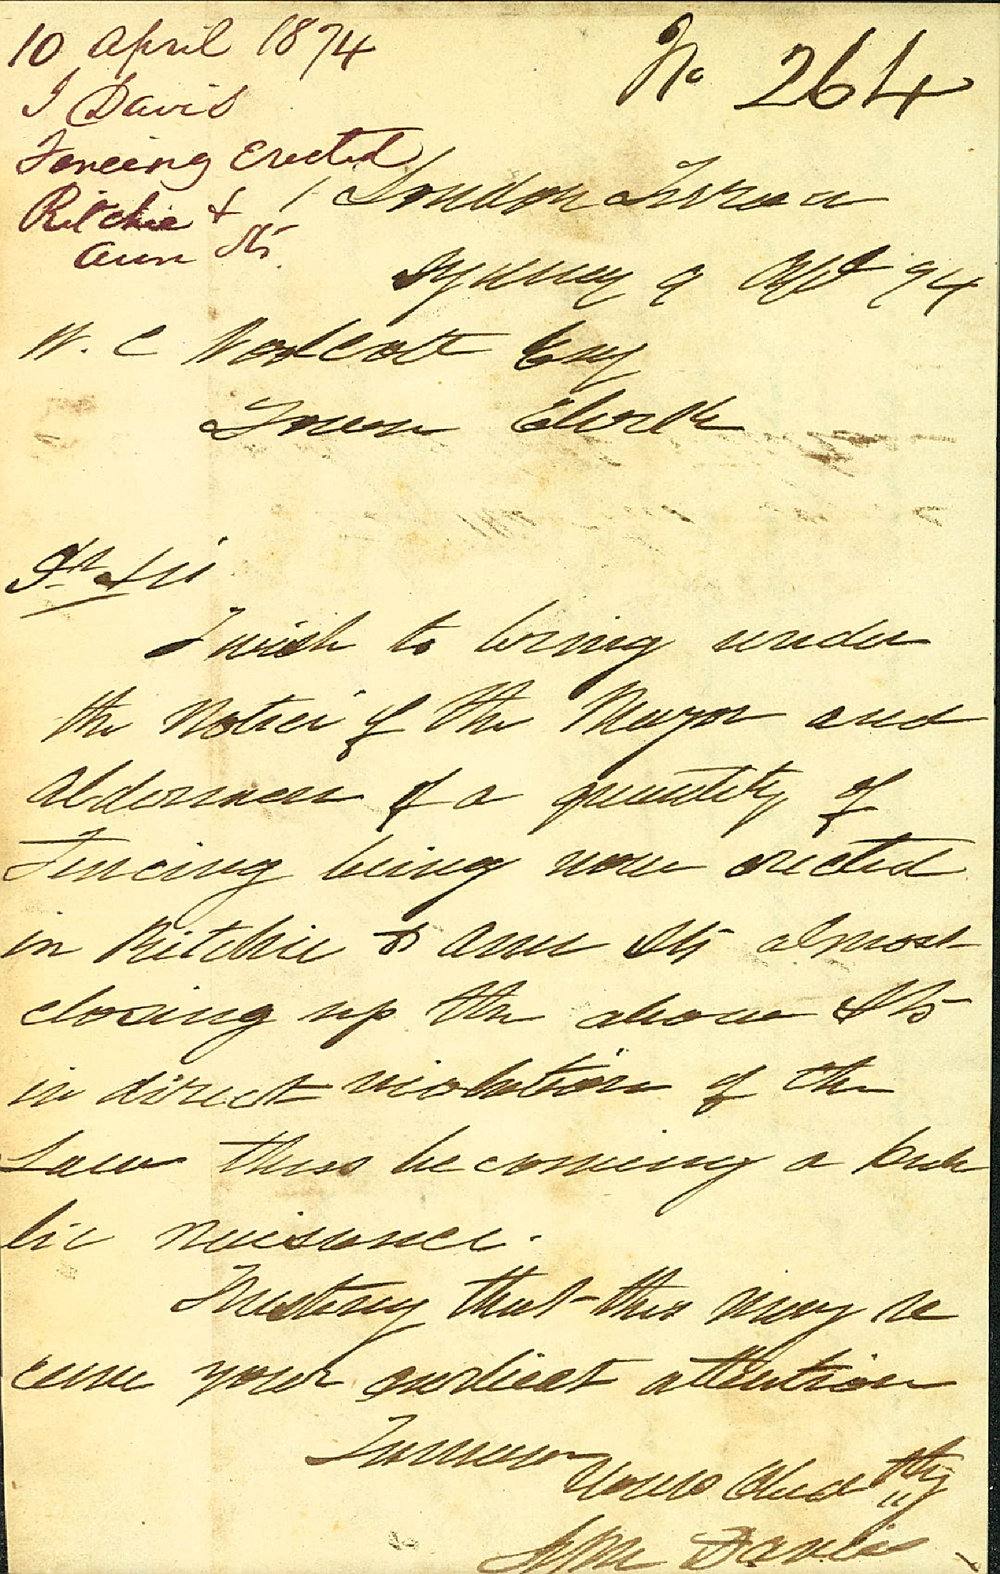 10 April 1874
J Davis
Fencing Erected
Ritchie &
Ann Sts.
No 264
1 London Terrace
Sydney 9 Apl 74
W. C Woolcott Esq
Town Clerk
Dr Sir
I wish to bring under
the Notice of the Mayor and
Aldermen of a quantity of
Fencing being now erected
in Ritchie & Ann Sts almost
closing up the above Sts
in direct violation of the
Law thus becoming a Pub
lic nuisance.
Trusting that this may re
ceive your earliest attention
I am
Yours Obed tly
Wm Davis